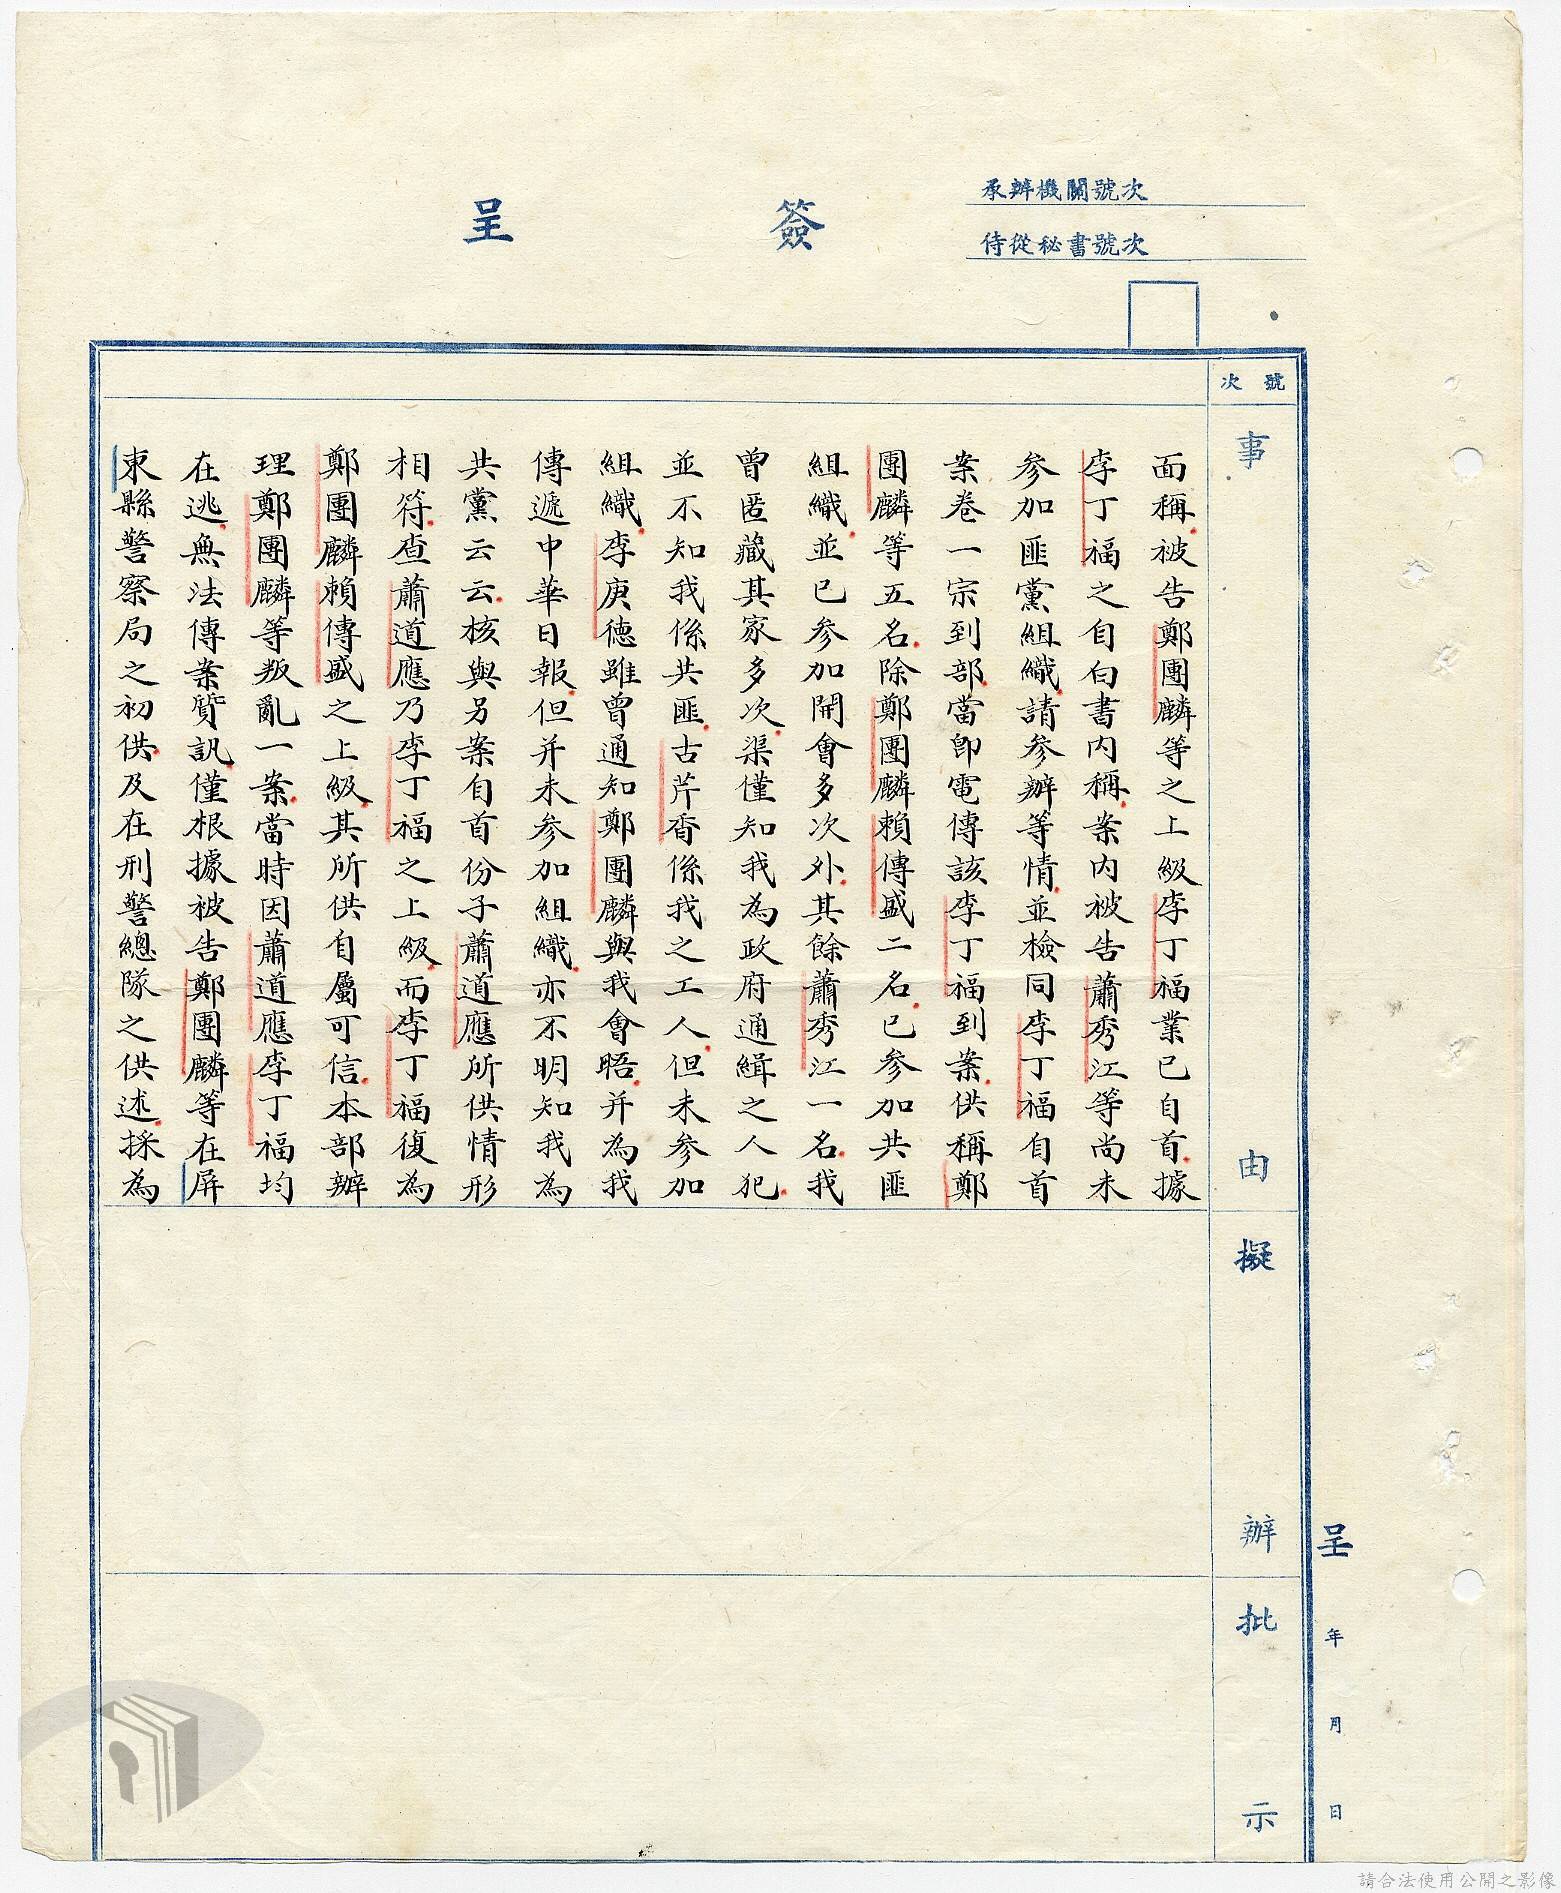 承辦機關號次
侍從秘書號次
簽呈
號次
事由
擬辦
批示
呈 年 月 日
面稱被告鄭團麟等之上級李丁福業已自首據
李丁福之自白書內稱案內被告蕭秀江等尚未
參加匪黨組織請參辦等情並檢同李丁福自首
案卷一宗到部當即電傳該李丁福到案供稱鄭
團麟等五名除鄭團麟賴傳盛二名已參加共匪
組織並已參加開會多次外其餘蕭秀江一名我
曾匿藏其家多次渠僅知我為政府通緝之人犯
並不知我係共匪古芹香係我之工人但未參加
組織李庚德雖曾通知鄭團麟與我會晤并為我
傳遞中華日報但并未參加組織亦不明知我為
共黨云云核與另案自首份子蕭道應所供情形
相符查蕭道應乃李丁福之上級而李丁福復為
鄭團麟賴傳盛之上級其所供自屬可信本部辦
理鄭團麟等叛亂一案當時因蕭道應李丁福均
在逃無法傳案質訊僅根據被告鄭團麟等在屏
東縣警察局之初供及在刑警總隊之供述採為
請合法使用公開之影像